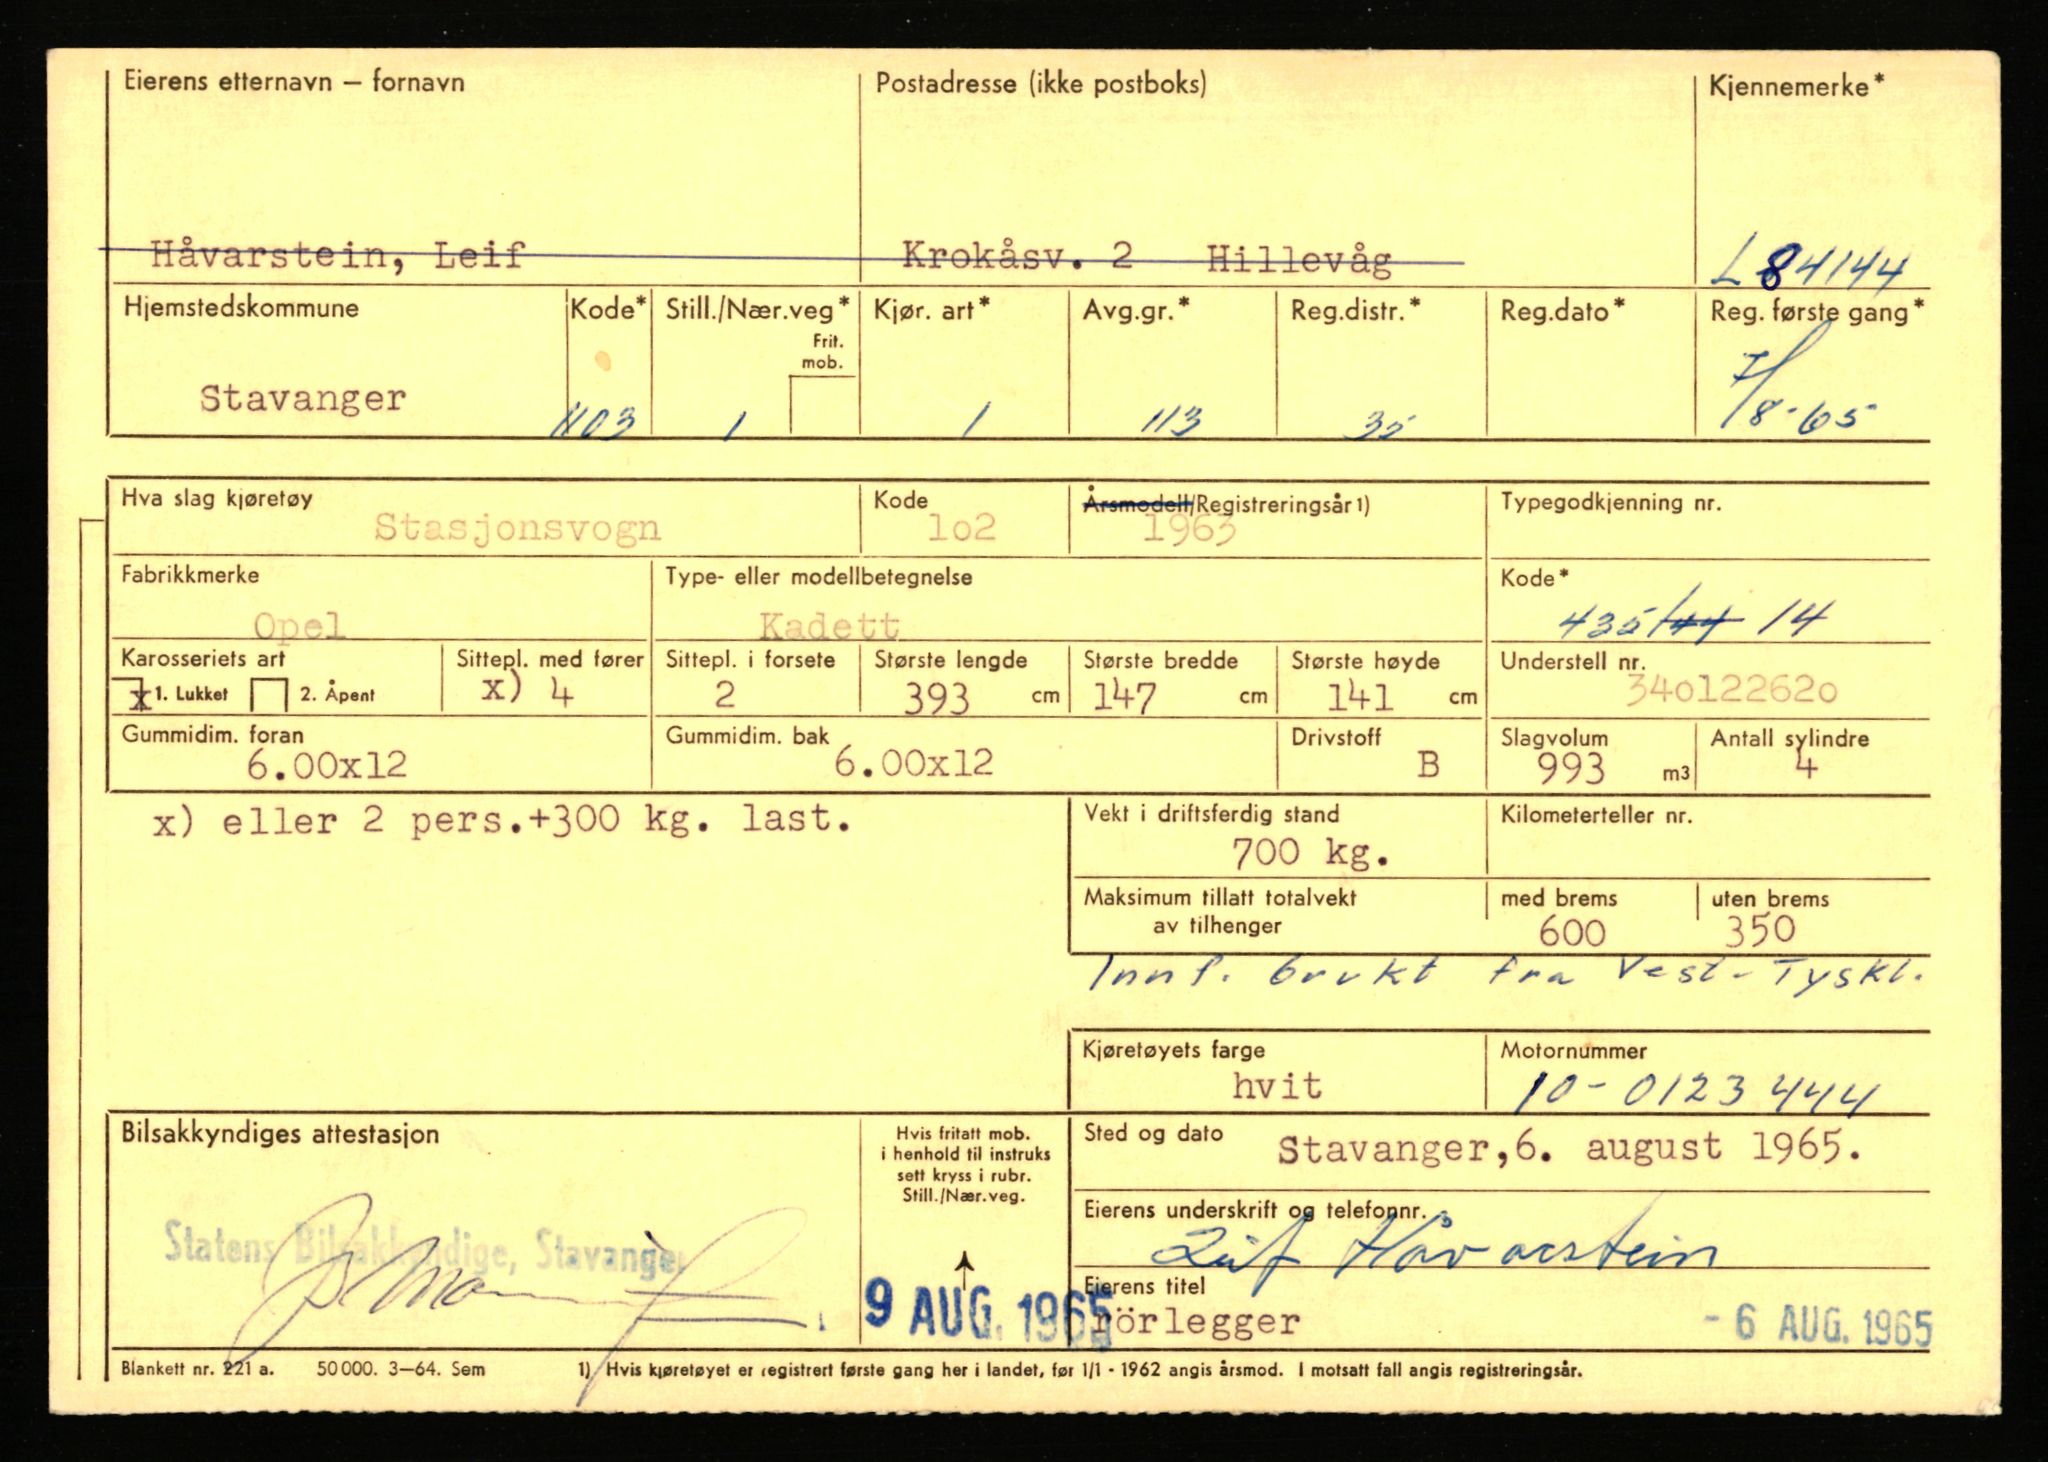 Eierens etternavn — fornavn Postadresse (ikke postboks) Kjennemerke*
Håvarstein, Leif Krokåsv. 2 Hillevåg L 84144
Hjemstedskommune Kode* Still./Nær.veg* Kjør. art* Avg.gr.* Reg.distr.* Reg.dato* Reg. første gang*
Frit.
mob.
Stavanger 1103 1 1 113 35 7/8-65
Hva slag kjøretøy Kode Årsmodell/Registreringsår 1) Typegodkjenning nr.
Stasjonsvogn 1o2 1963
Fabrikkmerke Type- eller modellbetegnelse Kode*
Opel Kadett 435/44 14
Karosseriets art Sittepl. med fører Sittepl. i forsete Største lengde Største bredde Største høyde Understell nr.
x 1. Lukket 2. Åpent x) 4 2 393 cm 147 cm 141 cm 34o12262o
Gummidim. foran Gummidim. bak Drivstoff Slagvolum Antall sylindre
6.00x12 6.00x12 B 993 m3 4
x) eller 2 pers.+300 kg. last. Vekt i driftsferdig stand Kilometerteller nr.
700 kg.
Maksimum tillatt totalvekt med brems uten brems
av tilhenger 600 350
Innf. brukt fra Vest-Tyskl.
Kjøretøyets farge Motornummer
hvit 10-0123444
Bilsakkyndiges attestasjon Hvis fritatt mob. Sted og dato
i henhold til instruks Stavanger,6. august 1965.
sett kryss i rubr.
Still./Nær.veg.
Eierens underskrift og telefonnr.
Statens Bilsakkyndige, Stavanger Leif Håvarstein
Eierens titel
9 AUG. 1965 rörlegger - 6 AUG. 1965
Blankett nr. 221 a. 50 000. 3—64. Sem 1) Hvis kjøretøyet er registrert første gang her i landet, før 1/1 - 1962 angis årsmod. I motsatt fall angis registreringsår.